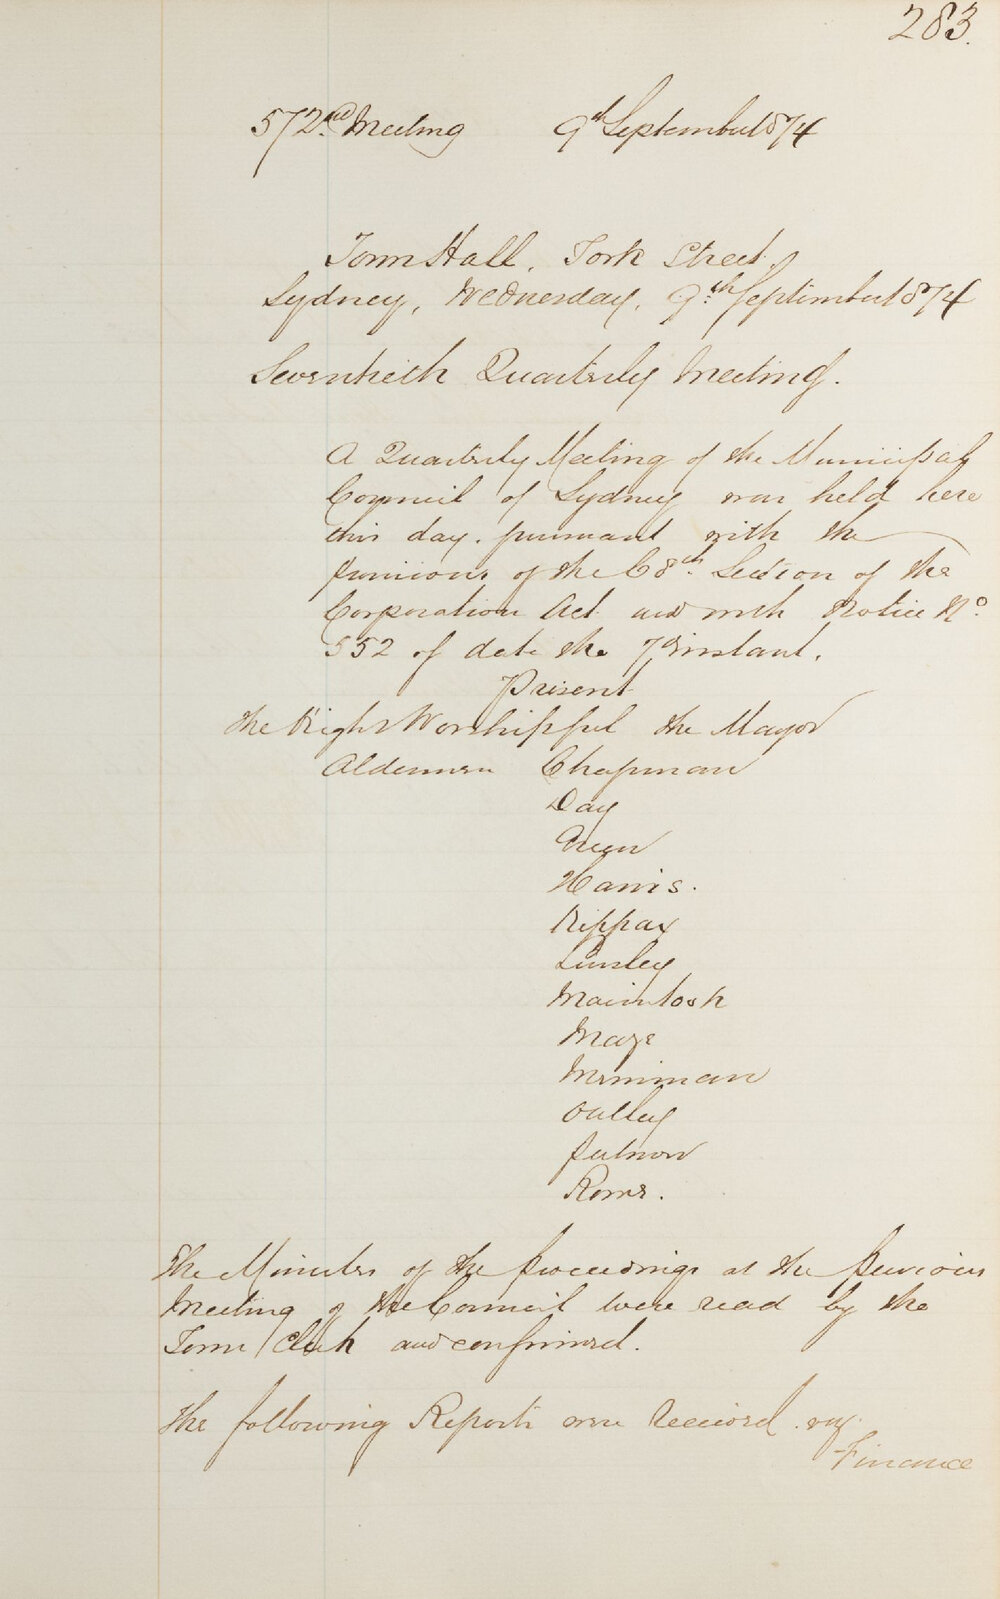 283.
572nd Meeting 9th September 1874
Town Hall, York Street,
Sydney, Wednesday, 9th September 1874
Seventieth Quarterly Meeting.
A Quarterly Meeting of the Municipal
Council of Sydney was held here
this day, pursuant with the
provisions of the 68th Section of the
Corporation Act and with Notice No.
552 of date the 7th instant.
Present
The Right Worshipful the Mayor
Aldermen Chapman
Day
Green
Harris.
Kippax
Linsley
Macintosh
Maze
Merriman
Oatley
Palmer
Rowe.
The Minutes of the proceedings at the previous
Meeting of the Council were read by the
Town Clerk and confirmed.
The following Reports were received viz.
Finance